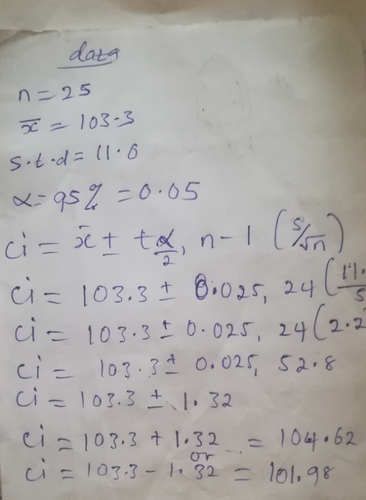 data
n = 25
x̄ = 103.3
s.t.d = 11.0
α = 95% = 0.05
Ci = x̄ ± t α/2, n-1 (s/√n)
Ci = 103.3 ± 0.025, 24 (11./5
Ci = 103.3 ± 0.025, 24 (2.2
Ci = 103.3 ± 0.025, 52.8
Ci = 103.3 ± 1.32
Ci = 103.3 + 1.32 = 104.62
or
Ci = 103.3 - 1.32 = 101.98